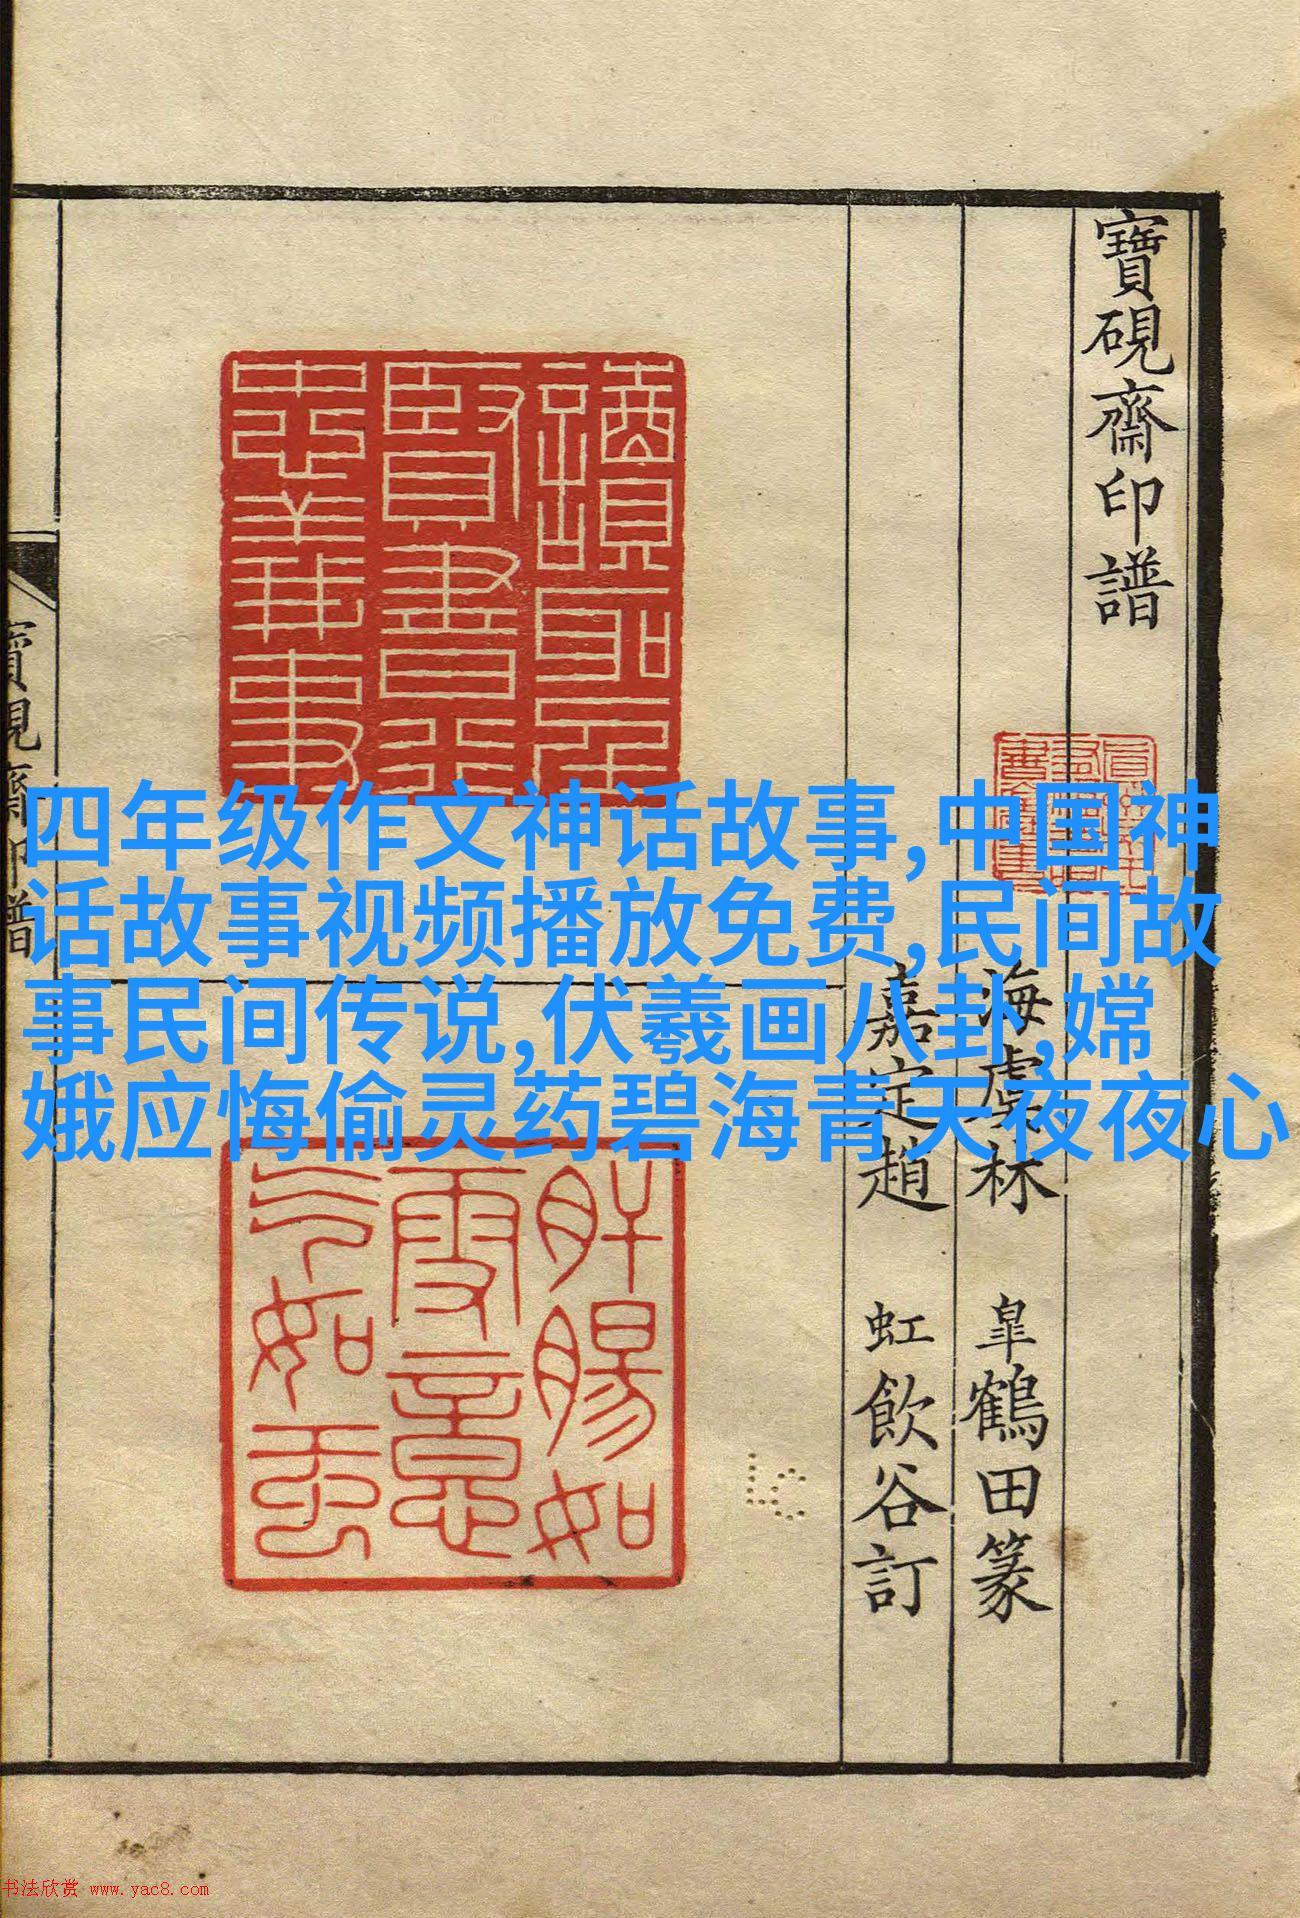 寶硯齋印譜
海虞林 皐鶴田篆
嘉定趙 虹飲谷訂
讀聖賢書行忠義事
肝腸如雪意氣如雲
四年级作文神话故事,中国神
话故事视频播放免费,民间故
事民间传说,伏羲画八卦,嫦
娥应悔偷灵药碧海青天夜夜心
书法欣赏 www.yac8.com